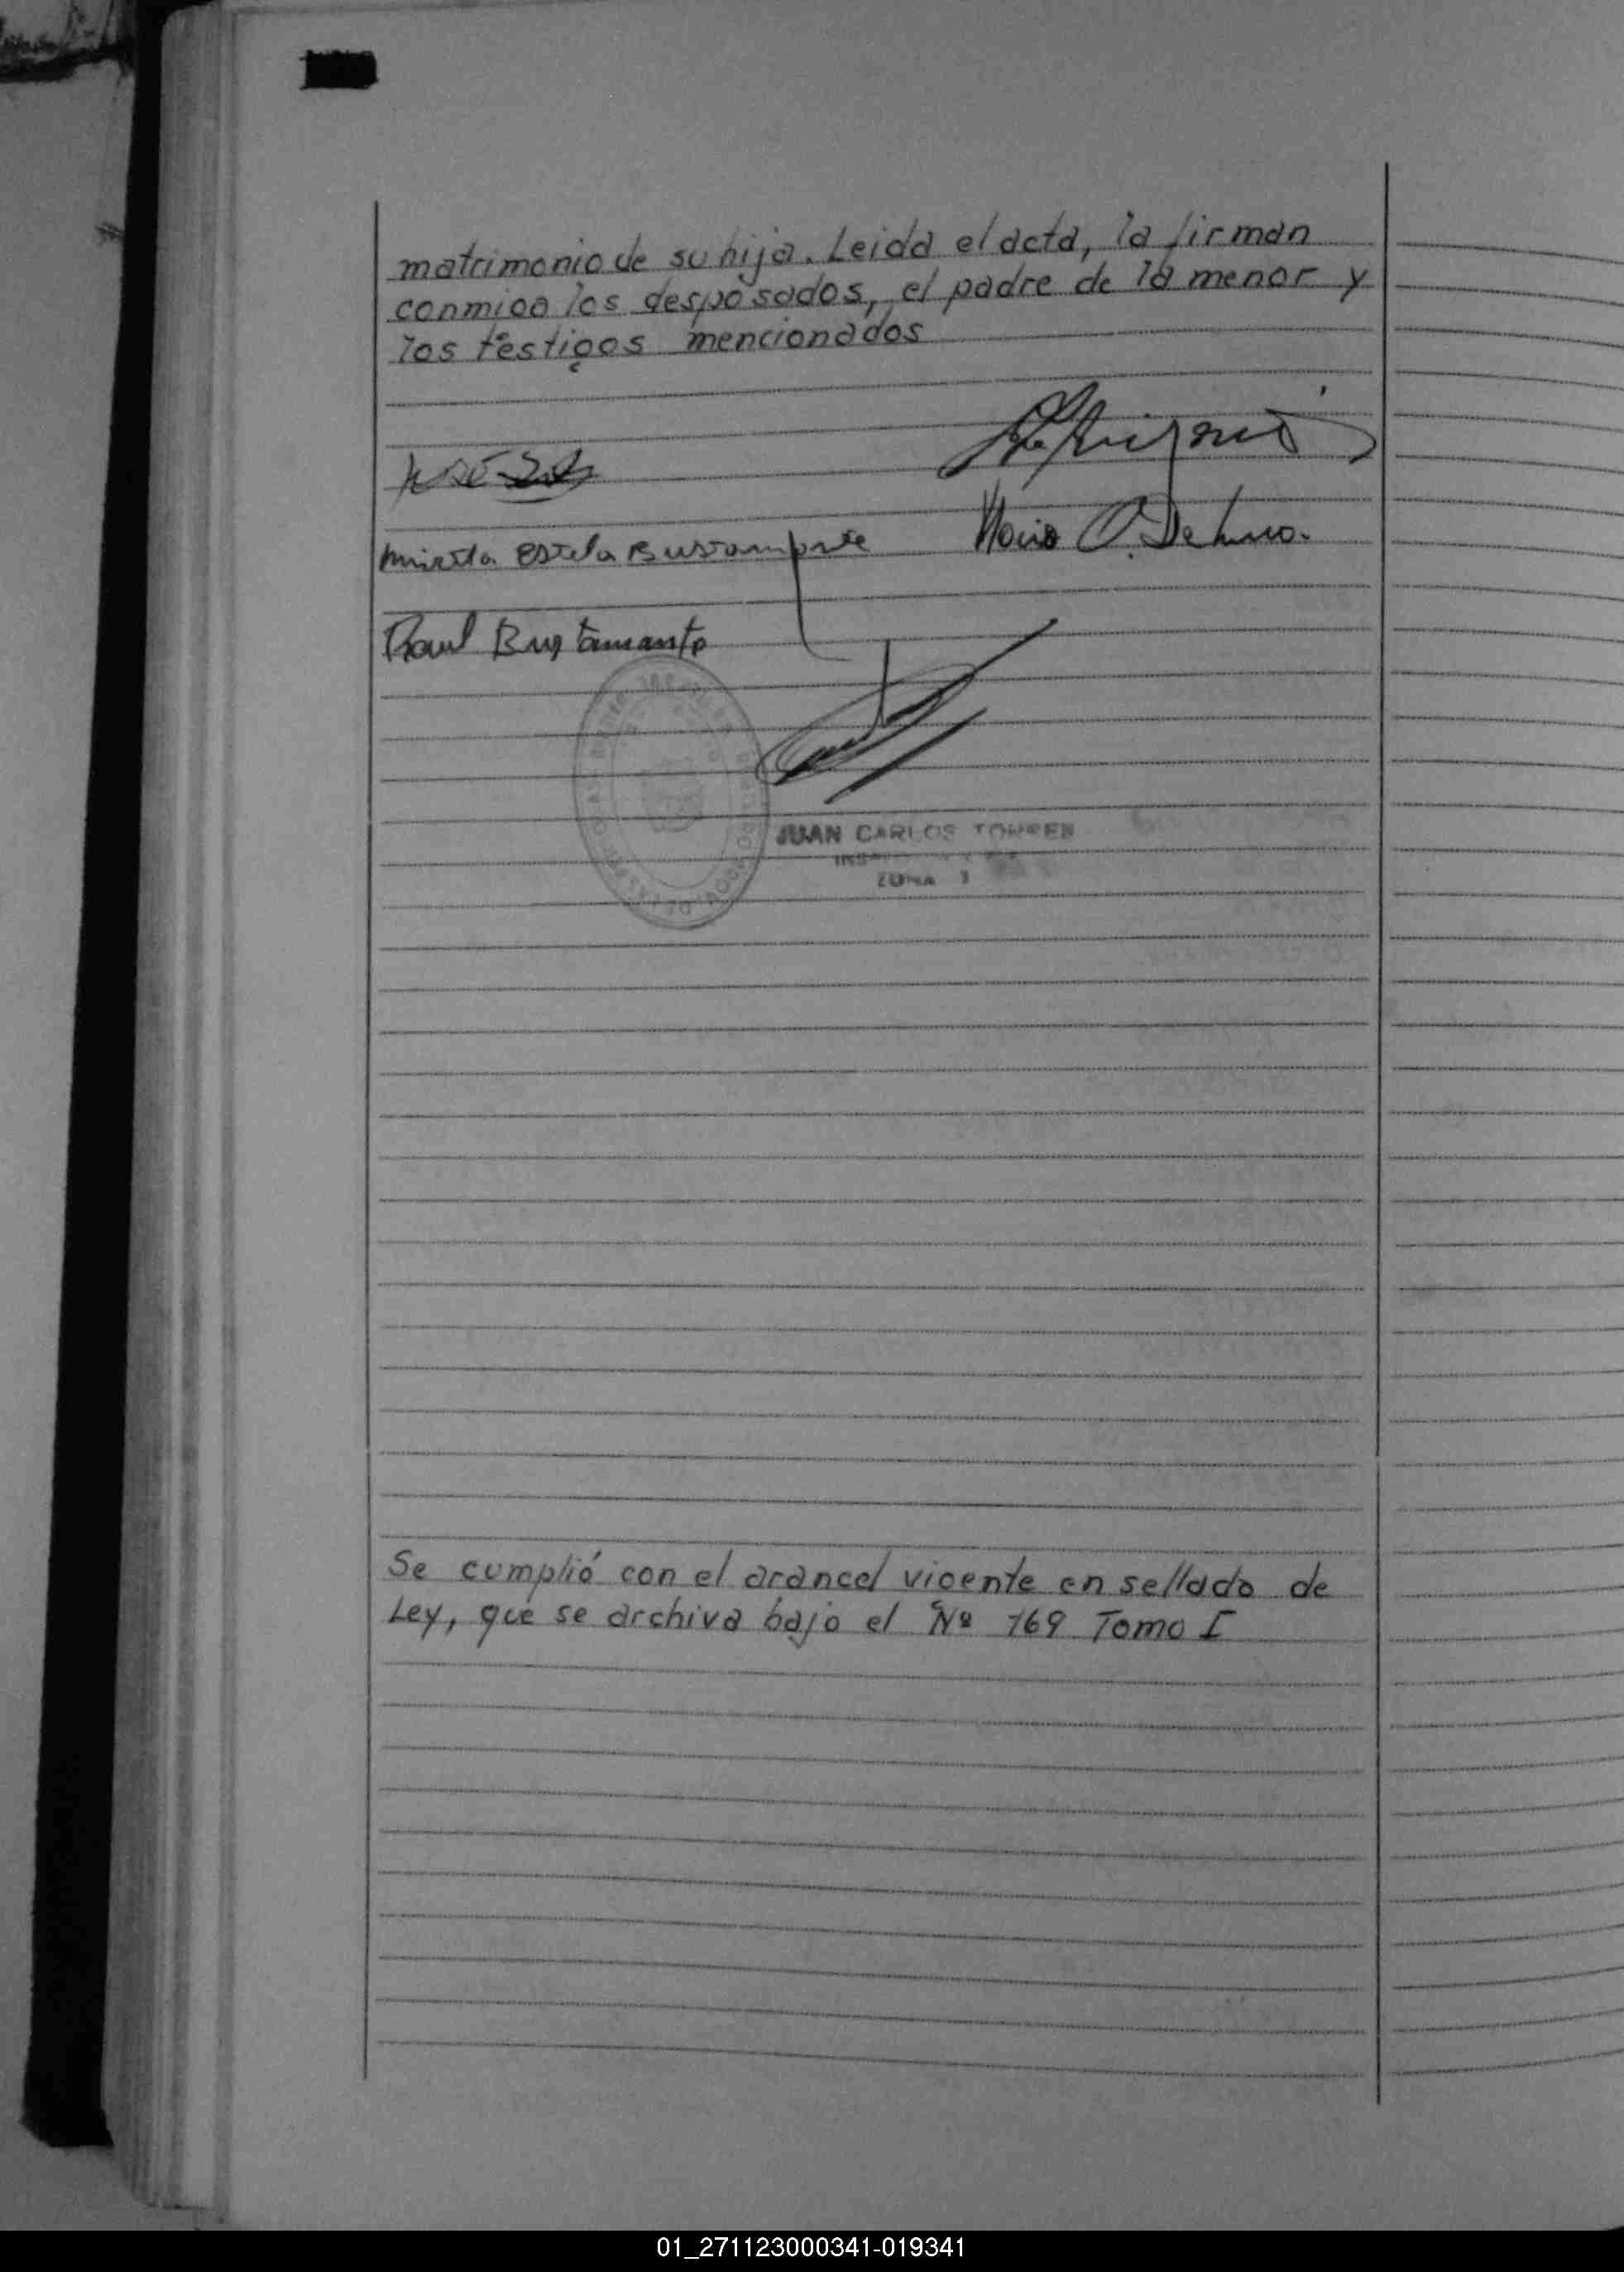 matrimonio de su hija. Leida el acta, la firman
conmigo los desposados, el padre de la menor y
los testigos mencionados
Mirta Estela Bustamante
Raul Bustamante
JUAN CARLOS TORRES
ZONA 1
Se cumplió con el arancel vigente en sellado de
Ley, que se archiva bajo el Nº 169 Tomo I
01_271123000341-019341